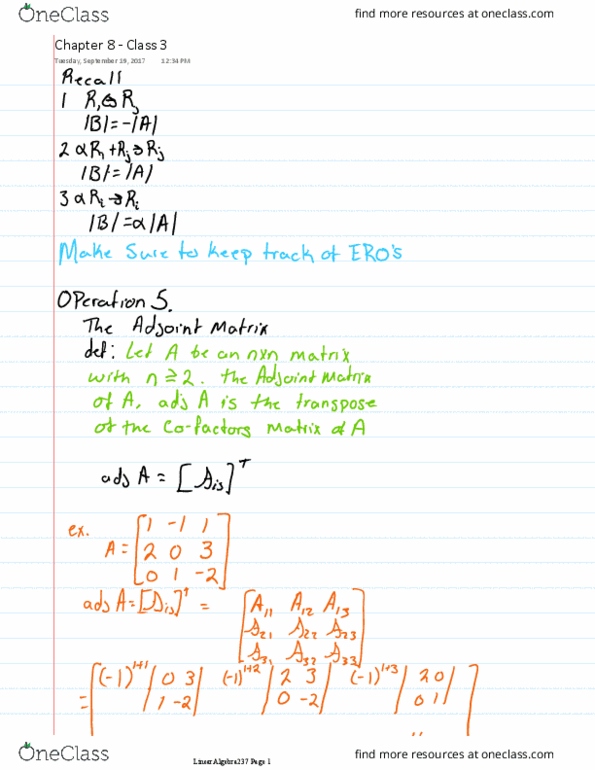 OneClass
find more resources at oneclass.com
Chapter 8 - Class 3
Tuesday, September 19, 2017 12:34 PM
Recall
1 Ri ↔ Rj
|B| = -|A|
2 αRi + Rj → Rj
|B| = |A|
3 αRi → Ri
|B| = α|A|
Make Sure to keep track of ERO's
Operation 5.
The Adjoint Matrix
def: Let A be an nxn matrix
with n ≥ 2. The Adjoint Matrix
of A, adj A is the transpose
of the Co-factors Matrix of A
adj A = [Aij]^T
ex.
A = [1 -1 1
2 0 3
0 1 -2]
adj A = [Aij]^T = [A11 A12 A13
A21 A22 A23
A31 A32 A33]
= [(-1)^1+1 |0 3| (-1)^1+2 |2 3| (-1)^1+3 |2 0|
|1 -2| |0 -2| |0 1|
OneClass
LinearAlgebra237 Page 1
find more resources at oneclass.com